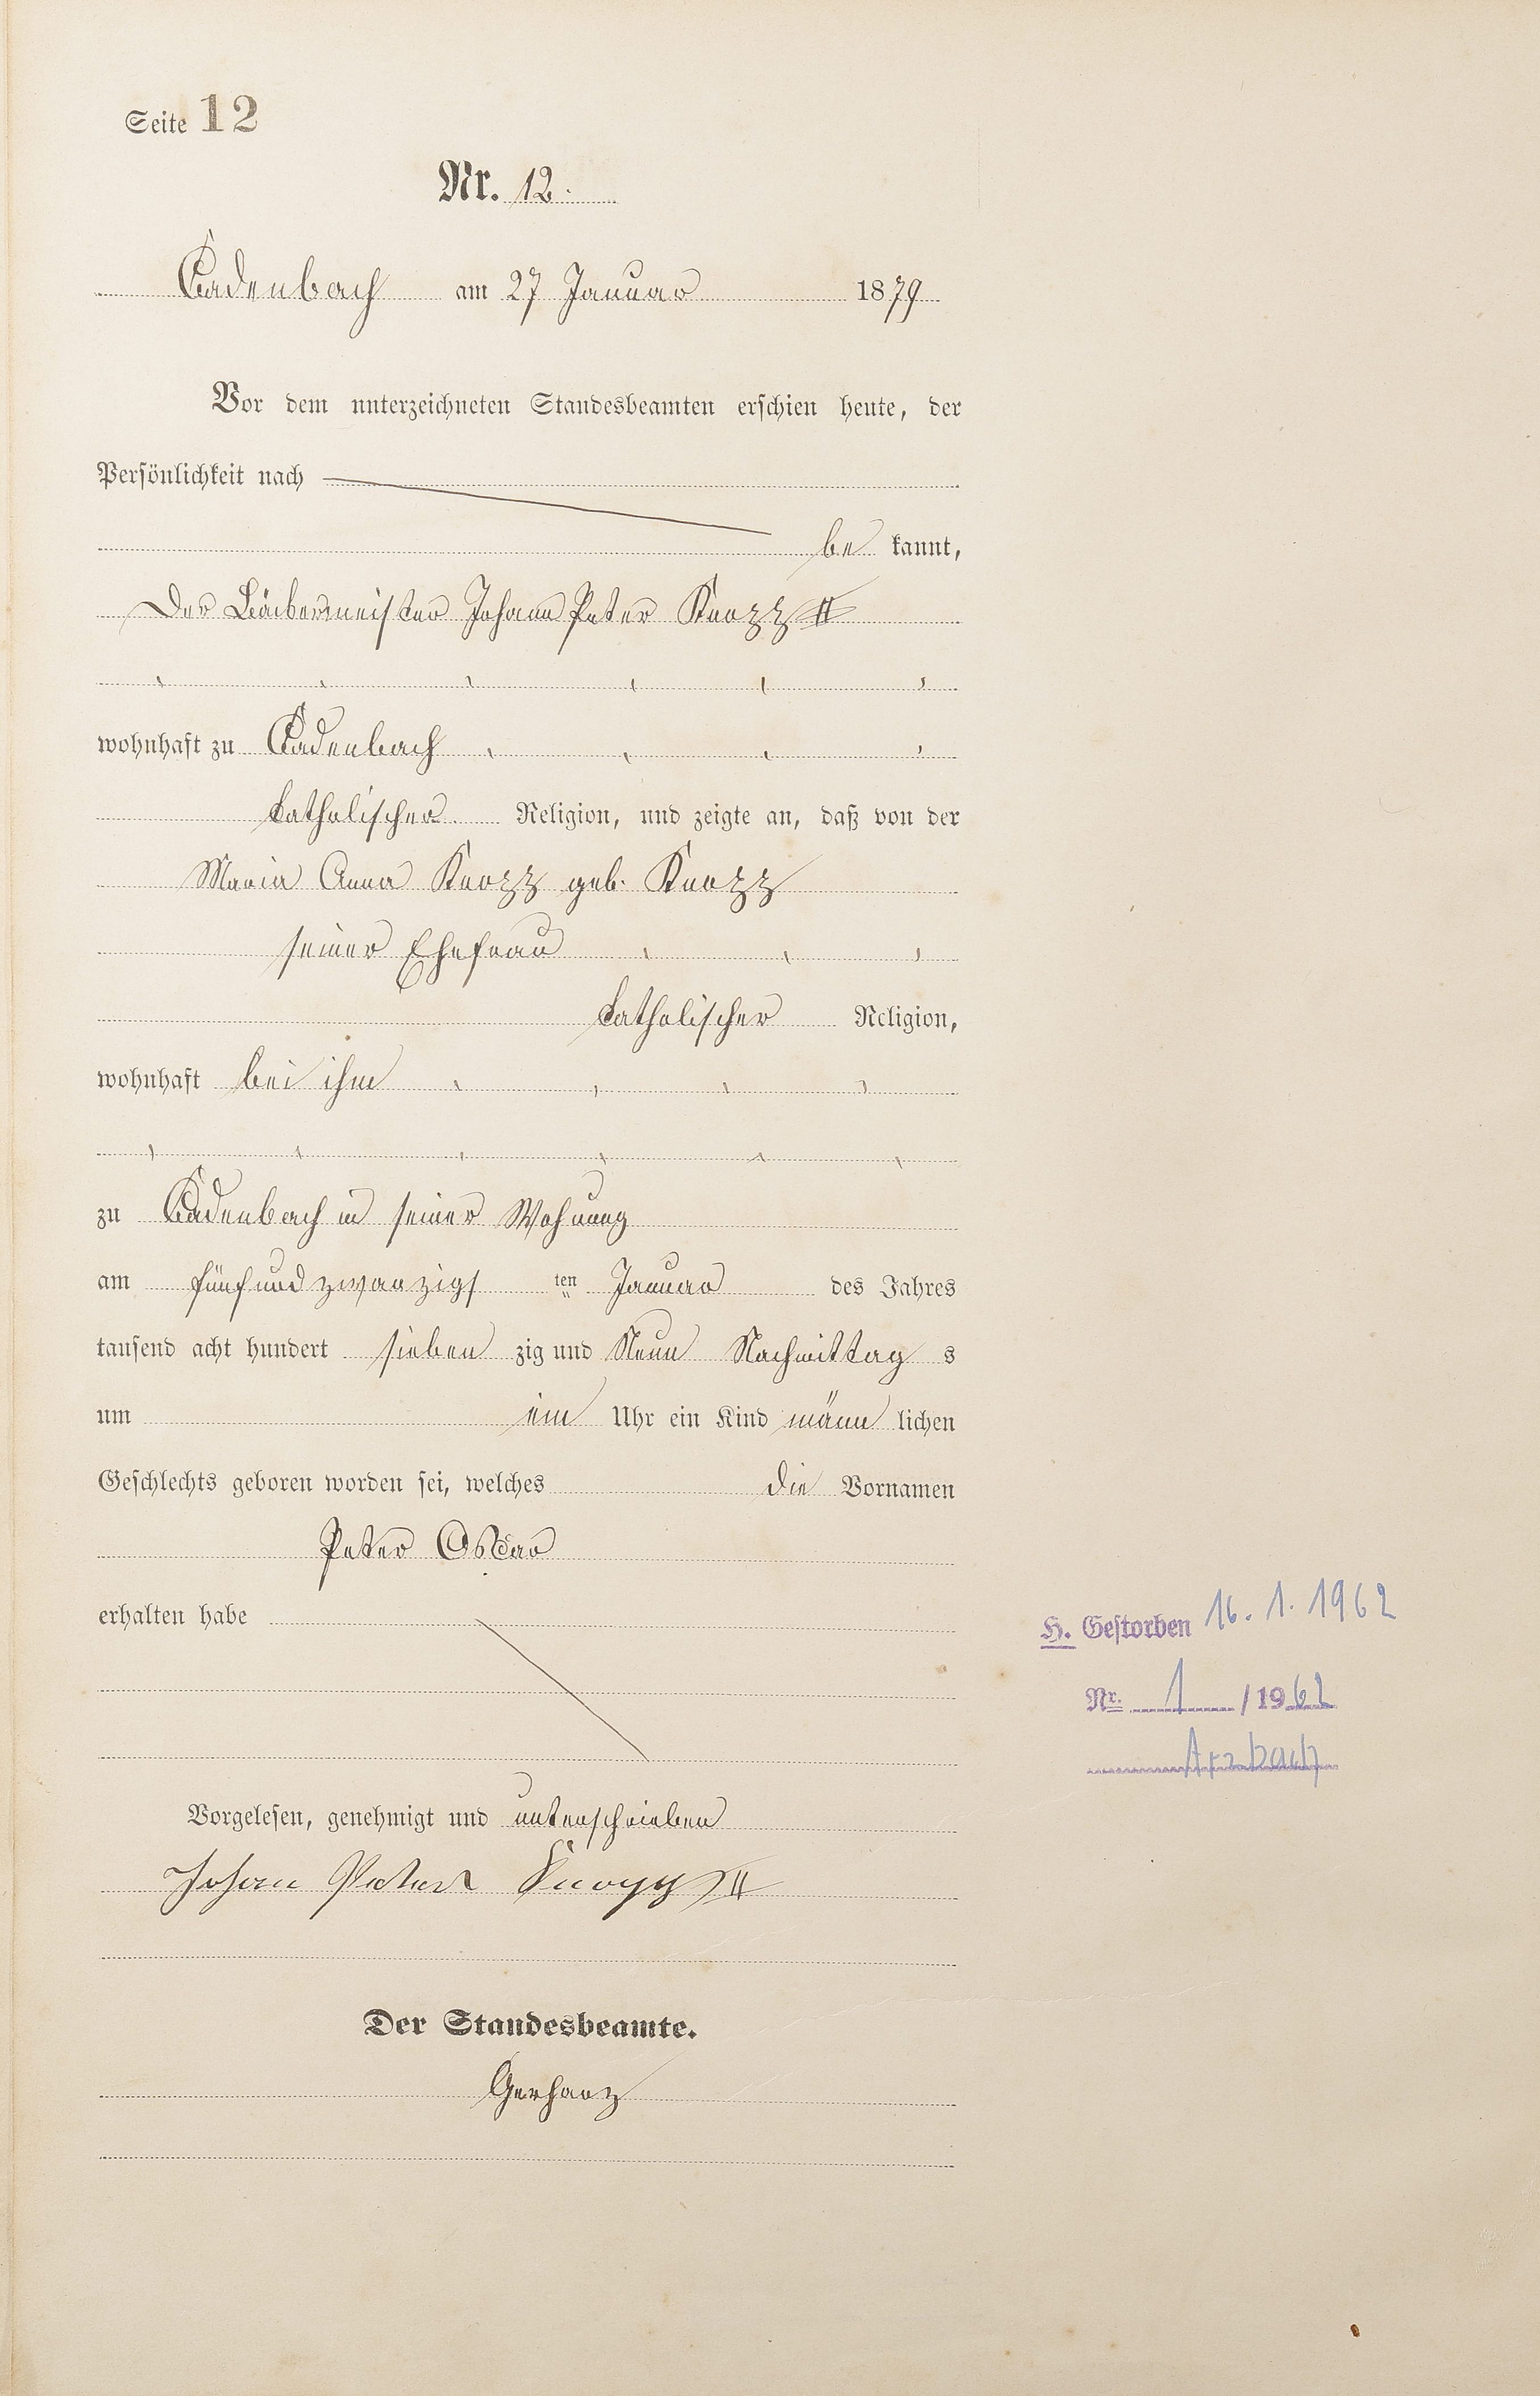 Seite 12
Nr. 12.
Cadenbach am 27 Januar 1879
Vor dem unterzeichneten Standesbeamten erschien heute, der
Persönlichkeit nach
be kannt,
Der Bäckermeister Johann Peter Knopp II
wohnhaft zu Cadenbach
katholischer Religion, und zeigte an, daß von der
Maria Anna Knopp geb. Knopp
seiner Ehefrau
katholischer Religion,
wohnhaft bei ihm
zu Cadenbach in seiner Wohnung
am fünfundzwanzigs ten Januar des Jahres
tausend acht hundert sieben zig und Neun Nachmittag s
um ein Uhr ein Kind männ lichen
Geschlechts geboren worden sei, welches die Vornamen
Peter Oscar
erhalten habe
H. Gestorben 16. 1. 1962
Nr. 1 / 1962
Arzbach
Vorgelesen, genehmigt und unterschrieben
Johan Peter Knopp II
Der Standesbeamte.
Gerharz